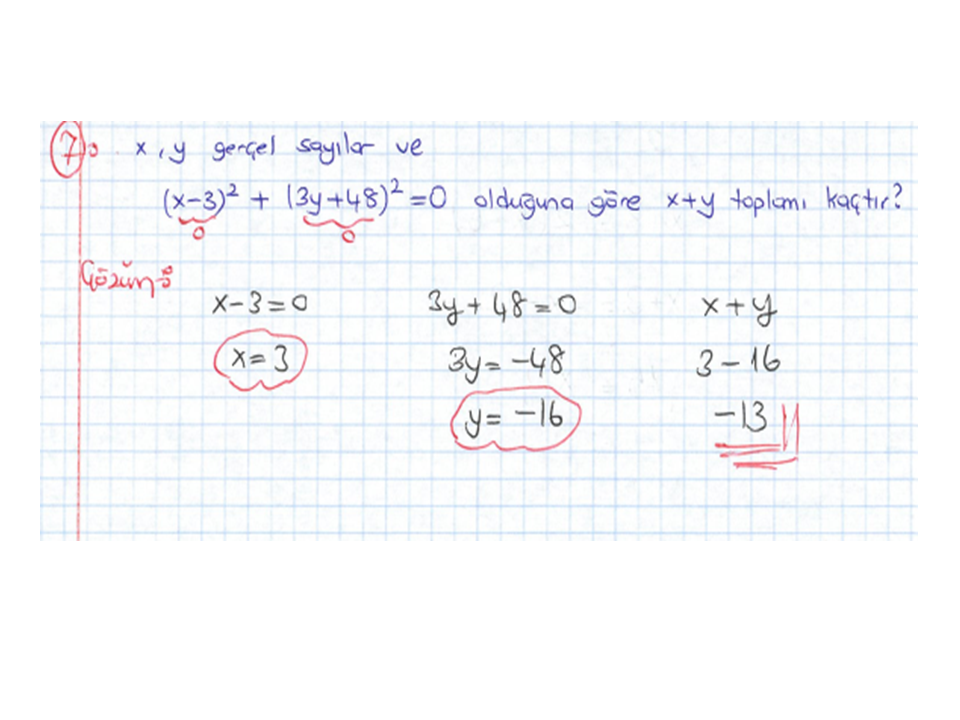 7) x, y gerçel sayılar ve
(x-3)² + (3y+48)² = 0 olduğuna göre x+y toplamı kaçtır?
0 0
Çözüm:
x-3=0 3y+48=0 x+y
x=3 3y=-48 3-16
y=-16 -13